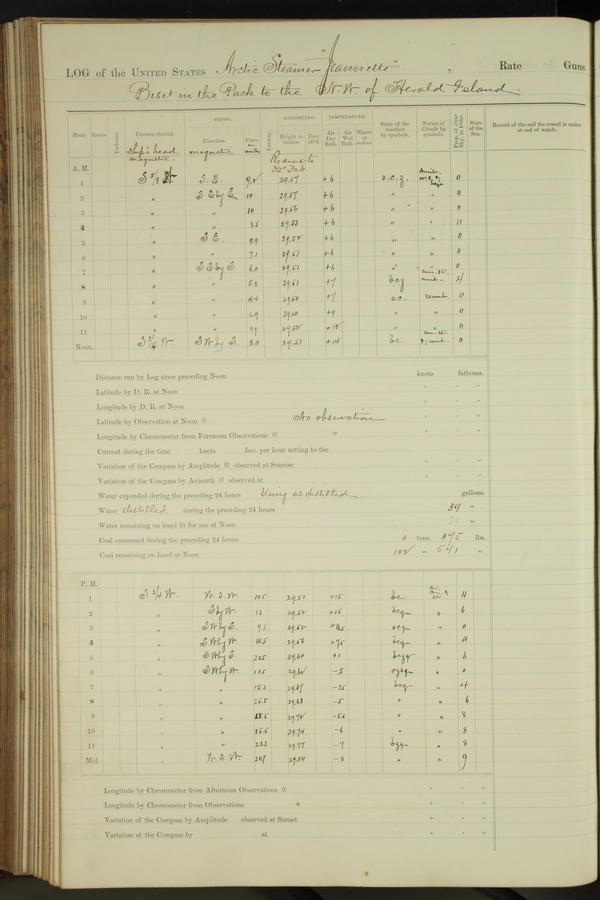 LOG of the UNITED STATES Arctic Steamer "Jeannette", Rate Guns
Beset in the Pack to the N.W. of Herald Island.
WINDS. BAROMETER. TEMPERATURE.
Hour. Knots. Fathoms. Courses steered. Direction. Force. Leeway. Height in inches. Ther. att'd. Air Dry Bulb. Air Wet Bulb. Water at surface. State of the weather by symbols. Forms of Clouds by symbols. Prop. of clear Sky, in 10ths. State of the Sea. Record of the sail the vessel is under at end of watch.
Ship's head magnetic. magnetic Reduced to 32° Fah.
A. M.
1 S. E. 29.57 +6 o.c.z. 0
2 " S E by E 10 29.57 +6 " " 0
3 " " 10 29.56 +6 " " 0
4 " " 29.53 +6 " " 0
5 " S E. 9.9 29.52 +6 " " 0
6 " " 7.1 29.51 +6 " " 0
7 " S E by S. 6.0 29.51 +6 " " 0
8 " " 5.8 29.51 +7 bcz 4
9 " " 29.50 +7 o.c. 0
10 " " 29.50 +9 " " 0
11 " " 29.52 +12 " " 0
Noon. S 3/4 W. S W by S. 8.0 29.51 +14 bc. 0
Distance run by Log since preceding Noon knots fathoms.
Latitude by D. R. at Noon ° ' "
Longitude by D. R. at Noon ° ' "
Latitude by Observation at Noon No observation ° ' "
Longitude by Chronometer from Forenoon Observations " ° ' "
Current during the time knots fms. per hour setting to the
Variation of the Compass by Amplitude observed at Sunrise ° ' "
Variation of the Compass by Azimuth observed at ° ' "
Water expended during the preceding 24 hours Using as distilled. gallons.
Water distilled during the preceding 24 hours 39 "
Water remaining on hand fit for use at Noon 39 "
Coal consumed during the preceding 24 hours 0 tons. 875 lbs.
Coal remaining on hand at Noon 102 " 541 "
P. M.
1 S 3/4 W. W. S. W. 10.5 29.51 +15 bc
2 " S by W. 29.52 +15 bcq " 6
3 " S W by S. 9.5 29.52 ocq " 0
4 " S W by W. 29.58 bcq "
5 " S W by E. 29.60 +1 bczq " 6
6 " S W by W. −5 " 0
7 " " 29.67 bcq "
8 " " 25.5 29.68 −5 " " 6
9 " " 29.72 −5.5 " " 8
10 " " 25.5 29.74 −6 " " 8
11 " " 29.77 −7 bzq " 8
Mid. " 29.80 −8 " " 9
Longitude by Chronometer from Afternoon Observations ° ' "
Longitude by Chronometer from Observations ° ' "
Variation of the Compass by Amplitude observed at Sunset ° ' "
Variation of the Compass by at ° ' "